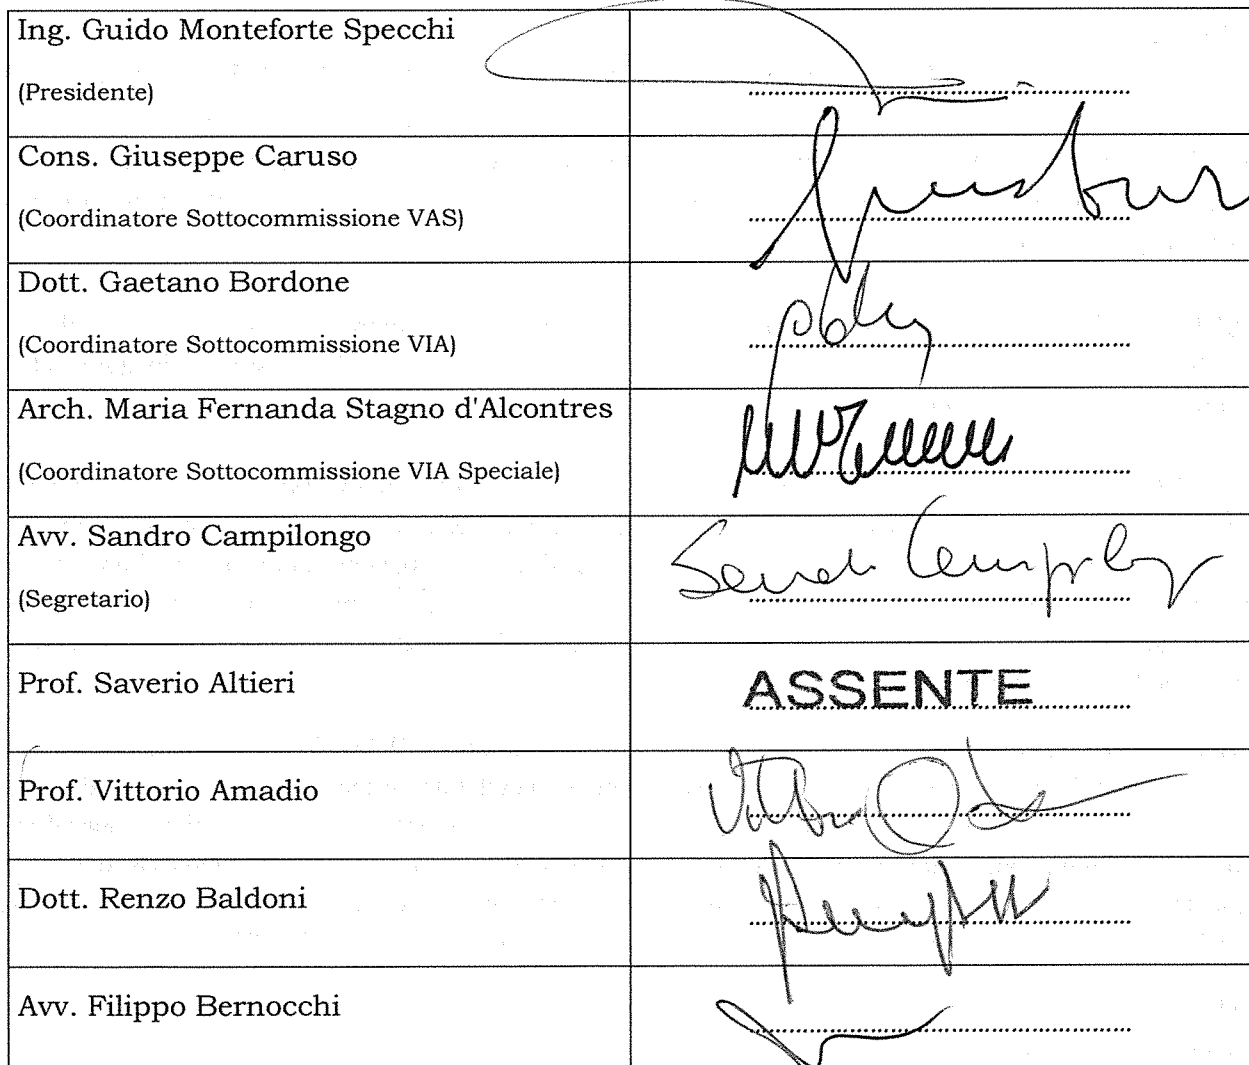 Ing. Guido Monteforte Specchi
(Presidente)
Cons. Giuseppe Caruso
(Coordinatore Sottocommissione VAS)
Dott. Gaetano Bordone
(Coordinatore Sottocommissione VIA)
Arch. Maria Fernanda Stagno d'Alcontres
(Coordinatore Sottocommissione VIA Speciale)
Avv. Sandro Campilongo
(Segretario)
Prof. Saverio Altieri
ASSENTE
Prof. Vittorio Amadio
Dott. Renzo Baldoni
Avv. Filippo Bernocchi